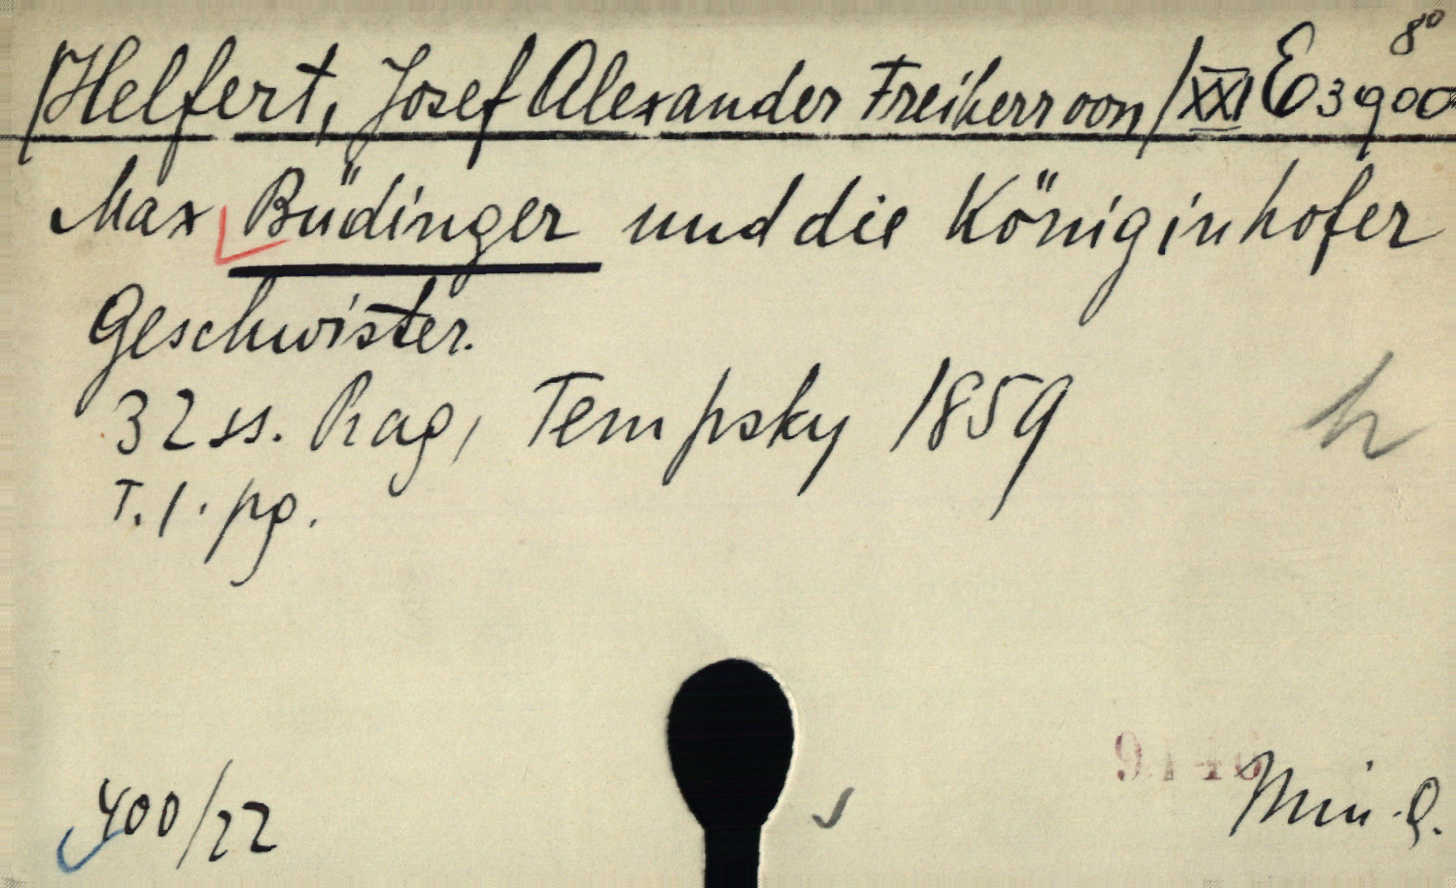 8°
/Helfert, Josef Alexander Freiherr von/ XXI E 3900
Max Büdinger und die Königinhofer
Geschwister.
32 ss. Prag, Tempsky 1859
T. 1. pg.
h
400/22
Min. Q.